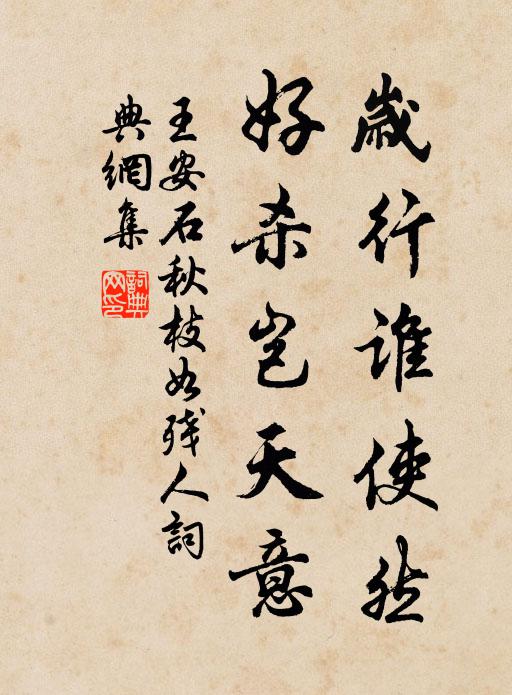 歲行誰使然
好杀岂天意
王安石秋枝如残人詞
典網集
詞典
网印